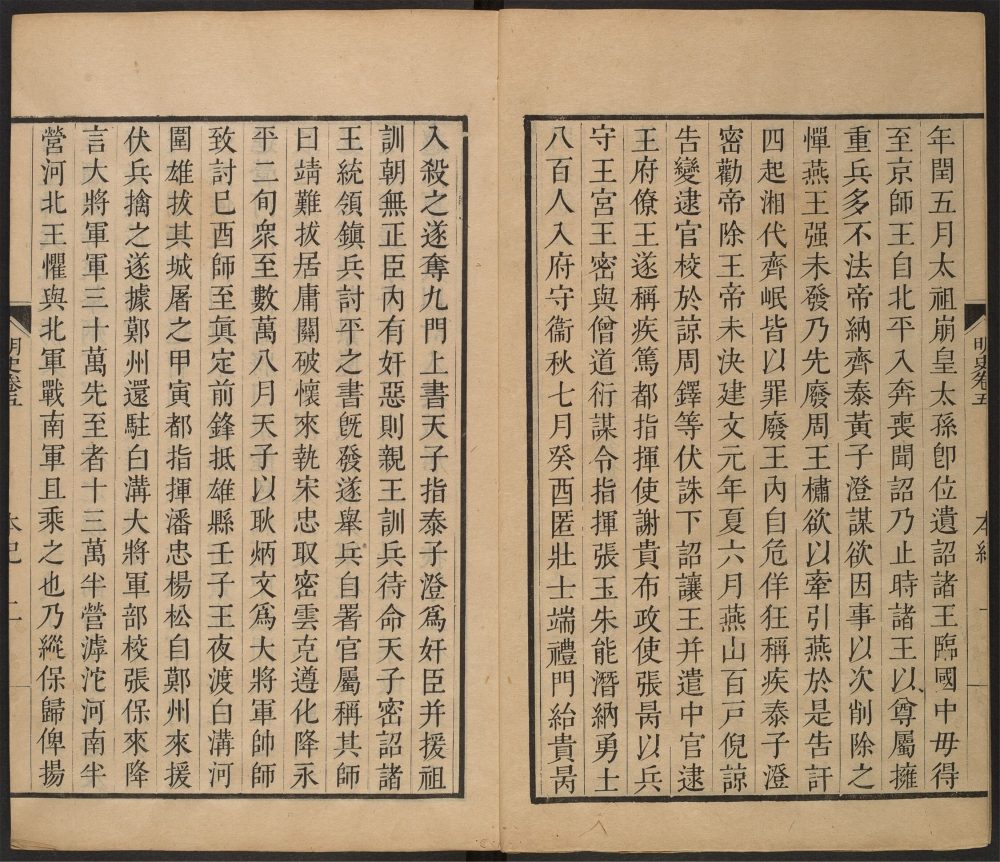 明史卷五
本紀
年閏五月太祖崩皇太孫卽位遺詔諸王臨國中毋得
至京師王自北平入奔喪聞詔乃止時諸王以尊屬擁
重兵多不法帝納齊泰黃子澄謀欲因事以次削除之
憚燕王强未發乃先廢周王橚欲以牽引燕於是告訐
四起湘代齊岷皆以罪廢王內自危佯狂稱疾泰子澄
密勸帝除王帝未決建文元年夏六月燕山百戸倪諒
告變逮官校於諒周鐸等伏誅下詔讓王并遣中官逮
王府僚王遂稱疾篤都指揮使謝貴布政使張昺以兵
守王宮王密與僧道衍謀令指揮張玉朱能潛納勇士
八百人入府守衞秋七月癸酉匿壯士端禮門紿貴昺
入殺之遂奪九門上書天子指泰子澄爲奸臣并援祖
訓朝無正臣內有奸惡則親王訓兵待命天子密詔諸
王統領鎭兵討平之書旣發遂舉兵自署官屬稱其師
曰靖難拔居庸關破懷來執宋忠取密雲克遵化降永
平二旬衆至數萬八月天子以耿炳文爲大將軍帥師
致討巳酉師至眞定前鋒抵雄縣壬子王夜渡白溝河
圍雄拔其城屠之甲寅都指揮潘忠楊松自鄭州來援
伏兵擒之遂據鄭州還駐白溝大將軍部校張保來降
言大將軍軍三十萬先至者十三萬半營滹沱河南半
營河北王懼與北軍戰南軍且乘之也乃縱保歸俾揚
明史卷五
本紀
二